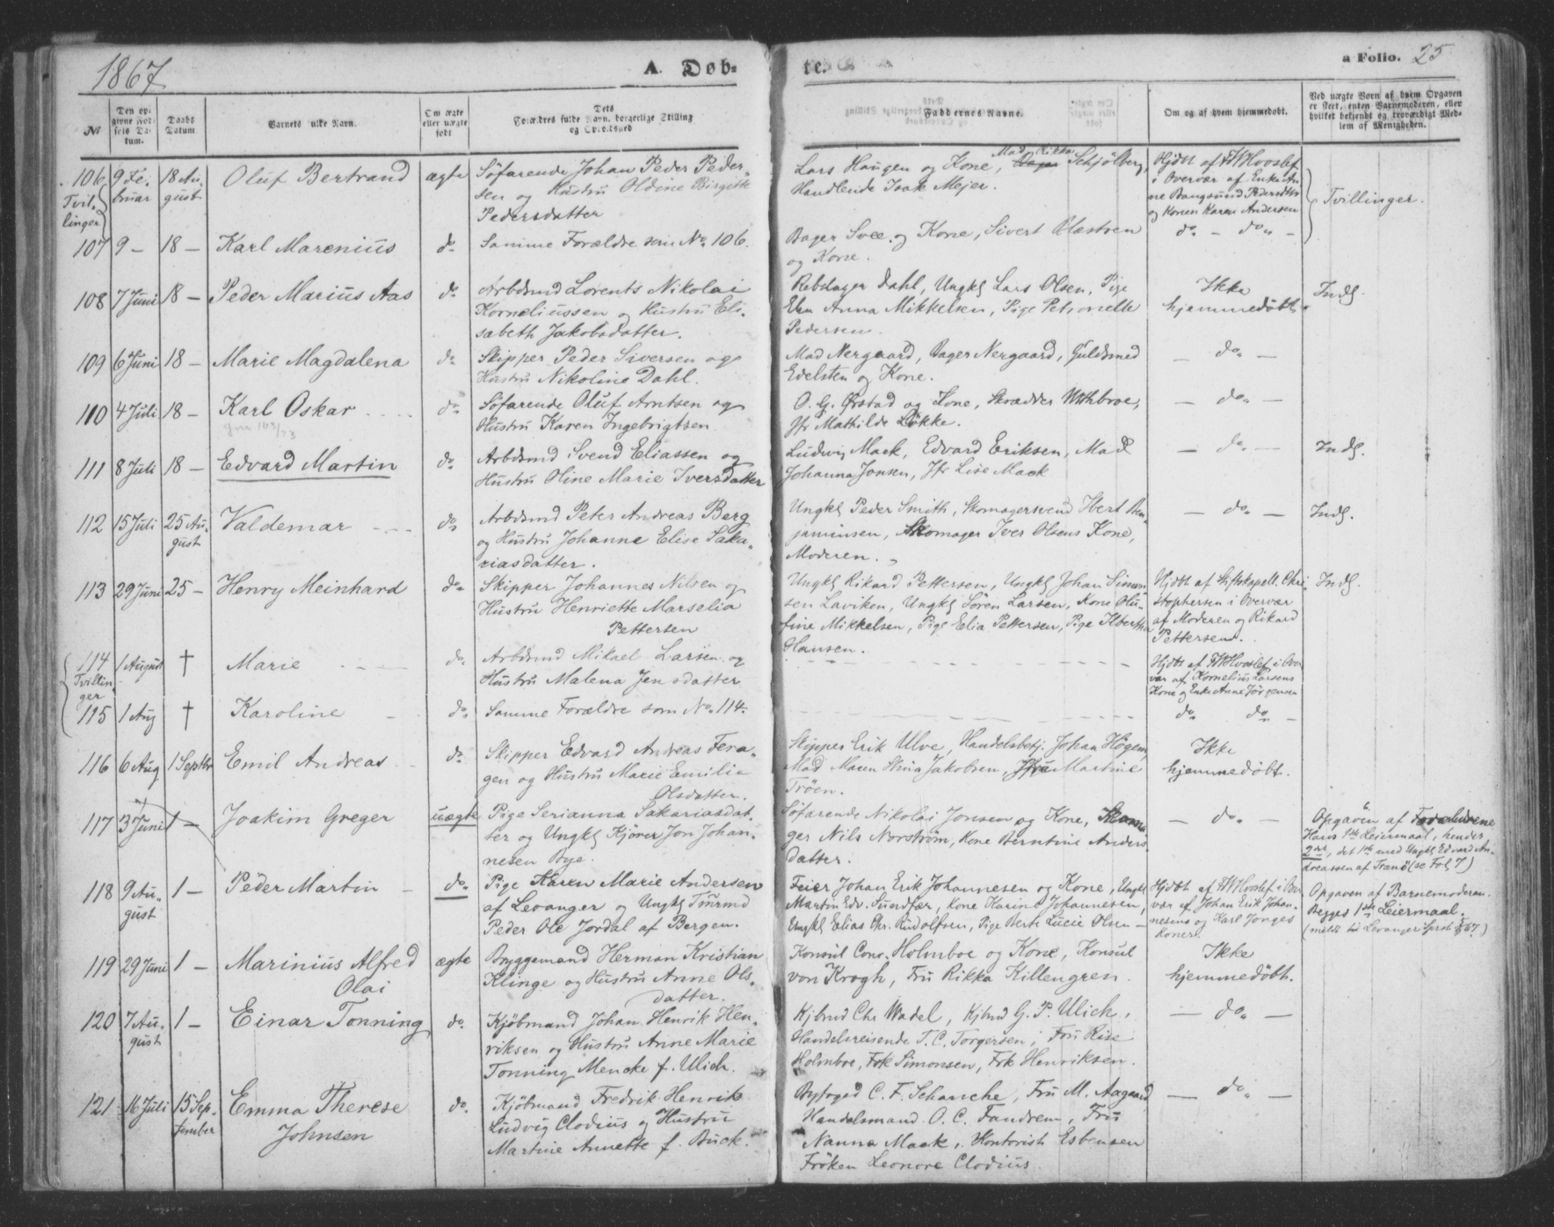 1867
A. Døb-
te.
a Folio. 25
No
Den op-
givne Fød-
sels Da-
tum.
Daabs
Datum.
Barnets fulde Navn.
Om ægte
eller uægte
født
Dets
Forældres fulde Navn, borgerlige Stilling
og Opholdssted
Faddernes Navne.
Om og af hvem hjemmedøbt.
Ved uægte Børn af hvem Opgaven
er skeet, enten Barnemoderen, eller
hvilket bekjendt og troværdigt Med-
lem af Menigheden.
106 9 Fe- 18 Au- Oluf Bertrand ægte Søfarende Johan Peder Peder-
Tvil- bruar gust sen og Hustru Oldine Birgitte
linger Pedersdatter
Lars Haugen og Kone, Mad. Rikka Schjølberg,
Handlende Isak Mejer.
Hjdøt af FWHvoslef
i Overvær af Enke An-
ne Bangsund Pedersdtr
og Konen Karen Andersen
Tvillinger.
107 9 - 18 - Karl Marenius do Samme Forældre som No. 106.
Bager Svee og Kone, Sivert
og Kone.
do - do -
108 7 Juni 18 - Peder Marius Aas do Arbdsmd Lorents Nikolai
Korneliussen og Hustru Eli-
sabeth Jakobsdatter.
Rebslager Dahl, Ungkl Lars Olsen, Pige
Anna Mikkelsen, Pige Petronelle
Pedersen.
Ikke
hjemmedøbt.
Indl.
109 6 Juni 18 - Marie Magdalena do Skipper Peder Siversen og
Hustru Nikoline Dahl.
Mad Nergaard, Bager Nergaard, Guldsmed
Edelsten og Kone.
- do - 
110 4 Juli 18 - Karl Oskar do Søfarende Oluf Arntsen og
Hustru Karen Ingebrigtsen
O. G. Ørstad og Kone, Skrædder
Jfr Mathilde Løkke.
- do -
111 8 Juli 18 - Edvard Martin do Arbdsmd Svend Eliassen og
Hustru Oline Marie Iversdatter
Ludvig Mack, Edvard Eriksen, Mad
Johanna Jonsen, Jfr Lise Mack
- do - Indl.
112 15 Juli 25 Au- Valdemar do Arbdsmd Peter Andreas Berg
gust og Hustru Johanne Elise Saka-
riasdatter.
Ungkl Peder Smith, Skomagersvend Ebert Ben-
jaminsen, Skomager Iver Olsens Kone,
Moderen.
- do - Indl.
113 29 Juni 25 - Henry Meinhard do Skipper Johannes Nilsen og
Hustru Henriette Marselia
Pettersen
Ungkl Rikard Pettersen, Ungkl Johan Simon-
sen Laviken, Ungkl Søren Larsen, Kone Olu-
fine Mikkelsen, Pige Elia Pettersen, Pige
Hansen.
Hjdøt af Stiftskapell. Chri-
stophersen i Overvær
af Moderen og Rikard
Pettersen.
Indl.
114 1 August † Marie do Arbdsmd Mikael Larsen og
Tvillin- Hustru Malena Jensdatter
ger
Hjdøt af FWHvoslef i Over-
vær af Kornelius Larsens
Kone og Enke Anne Jørgensen
115 1 Aug † Karoline do Samme Forældre som No. 114.
do do -
116 6 Aug 1 Septbr Emil Andreas do Skipper Edvard Andreas Fera-
gen og Hustru Marie Emilie
Olsdatter.
Skipper Erik Ulve, Handelsbetj. Johan Høgem,
Mad Maren Stina Jakobsen, Jfr Martine
Trøen.
Ikke
hjemmedøbt.
117 3 Juni 1 - Joakim Greger uægte Pige Serianna Sakariasdat-
ter og Ungkl Kjører Jon Johan-
nesen Bye.
Søfarende Nikolai Jonsen og Kone,
ger Nils Norstrøm, Kone Berntine Anders-
datter.
- do -
Opgaven af Forældrene
Hans 1ste Leiermaal, hendes
2det, det 1ste med Ungkl Edvard An-
dreassen af Tranø (se Fol 7)
118 9 Au- 1 - Peder Martin - do Pige Karen Marie Andersen
gust af Levanger og Ungkl Tømmd
Peder Ole Jordal af Bergen.
Feier Johan Erik Johannesen og Kone, Ungkl
Martin Edv. Suordfær, Kone Karine Johannesen,
Ungkl Elias Chr. Rudolfsen, Pige Berit Lucie Olsen -
Hjdøt af FWHvoslef i Over-
vær af Johan Erik Johan-
nesens og Karl Jonges
Koner.
Opgaven af Barnemoderen.
Begges 1ste Leiermaal.
119 29 Juni 1 - Marinius Alfred ægte Bryggemand Herman Kristian
Olai Klinge og Hustru Anne Ols-
datter.
Konsul Conr. Holmboe og Kone, Konsul
von Krogh, Fru Rikka Killengren
Ikke
hjemmedøbt.
120 7 Au- 1 - Einar Tonning do Kjøbmand Johan Henrik Hen-
gust riksen og Hustru Anne Marie
Tonning Mencke f. Ulich.
Kjbmd Chr Wadel, Kjbmd G. P. Ulich,
Handelsreisende T. C. Torgersen, Fru Rise
Holmboe, Frk Simonsen, Frk Henriksen.
- do -
121 16 Juli 15 Sep- Emma Therese do Kjøbmand Fredrik Henrik
tember Johnsen Ludvig Clodius og Hustru
Martine Annette f. Buck.
Byfoged C. F. Schanche, Fru M. Aagaard
Handelsmand O. C. Fandrem, Fru
Nanna Mack, Kontorist Esbensen
Frøken Leonore Clodius.
- do -